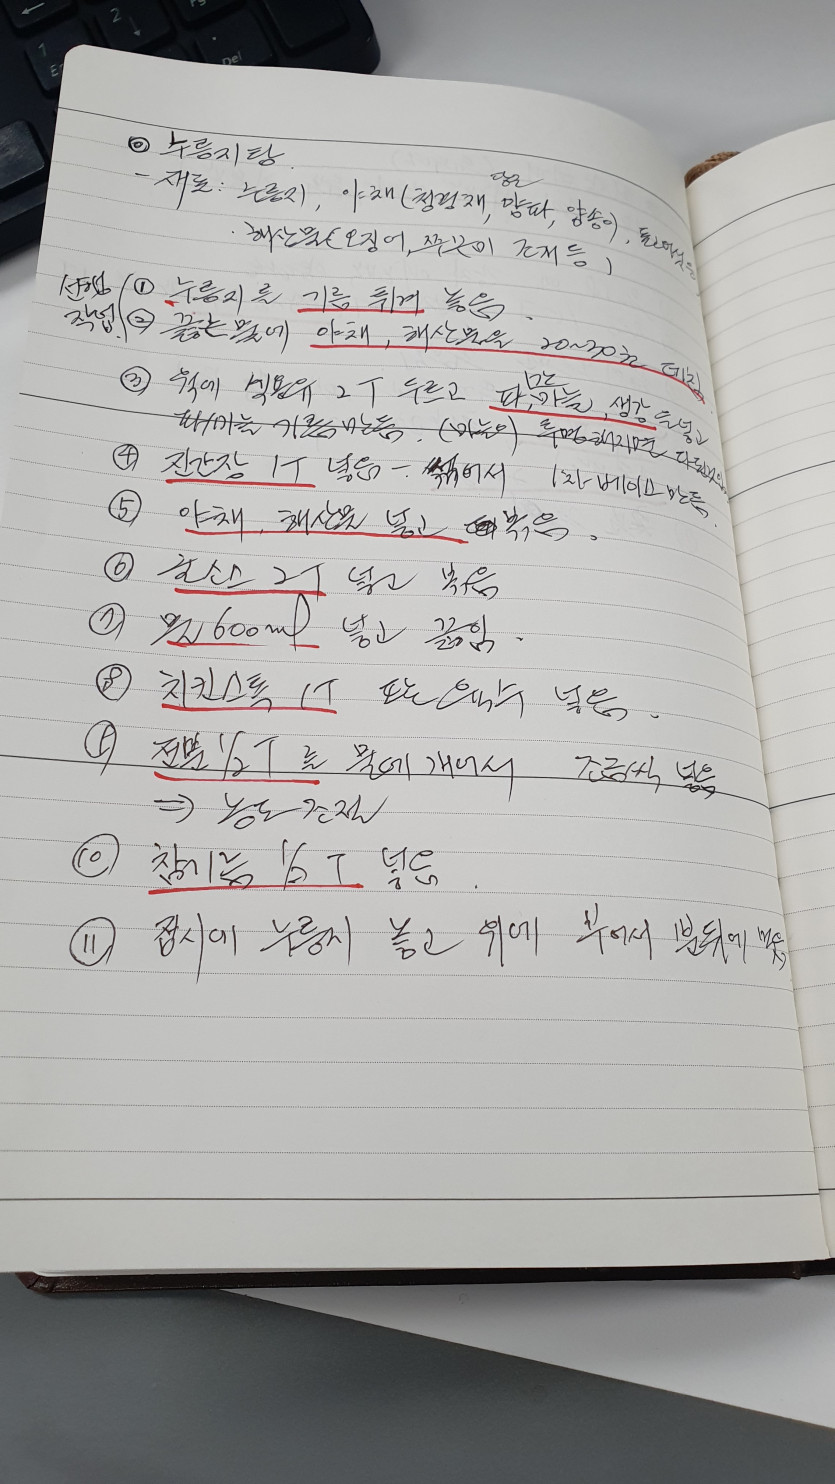 ◎ 누룽지탕.
당근
- 재료: 누룽지, 야채(청경채, 양파, 양송이),
· 해산물(오징어, 쭈꾸미 조개 등)
선행 ① 누룽지를 기름 튀겨 놓음.
작업. ② 끓는 물에 야채, 해산물을 20~30초 데침.
③ 웍에 식용유 2T 두르고 파, 마늘, 생강을 넣고
파/마늘 기름 만듬. (마늘이) 투명해지면
④ 진간장 1T 넣음 - 섞어서 1차 베이스 만듬.
⑤ 야채, 해산물 넣고 볶음.
⑥ 굴소스 2T 넣고 볶음
⑦ 물 600ml 넣고 끓임.
⑧ 치킨스톡 1T 또는 육수 넣음.
⑨ 전분 1/2T를 물에 개어서 조금씩 넣음
⇒ 농도 조절
⑩ 참기름 T 넣음.
⑪ 접시에 누룽지 놓고 위에 부어서 1분뒤에